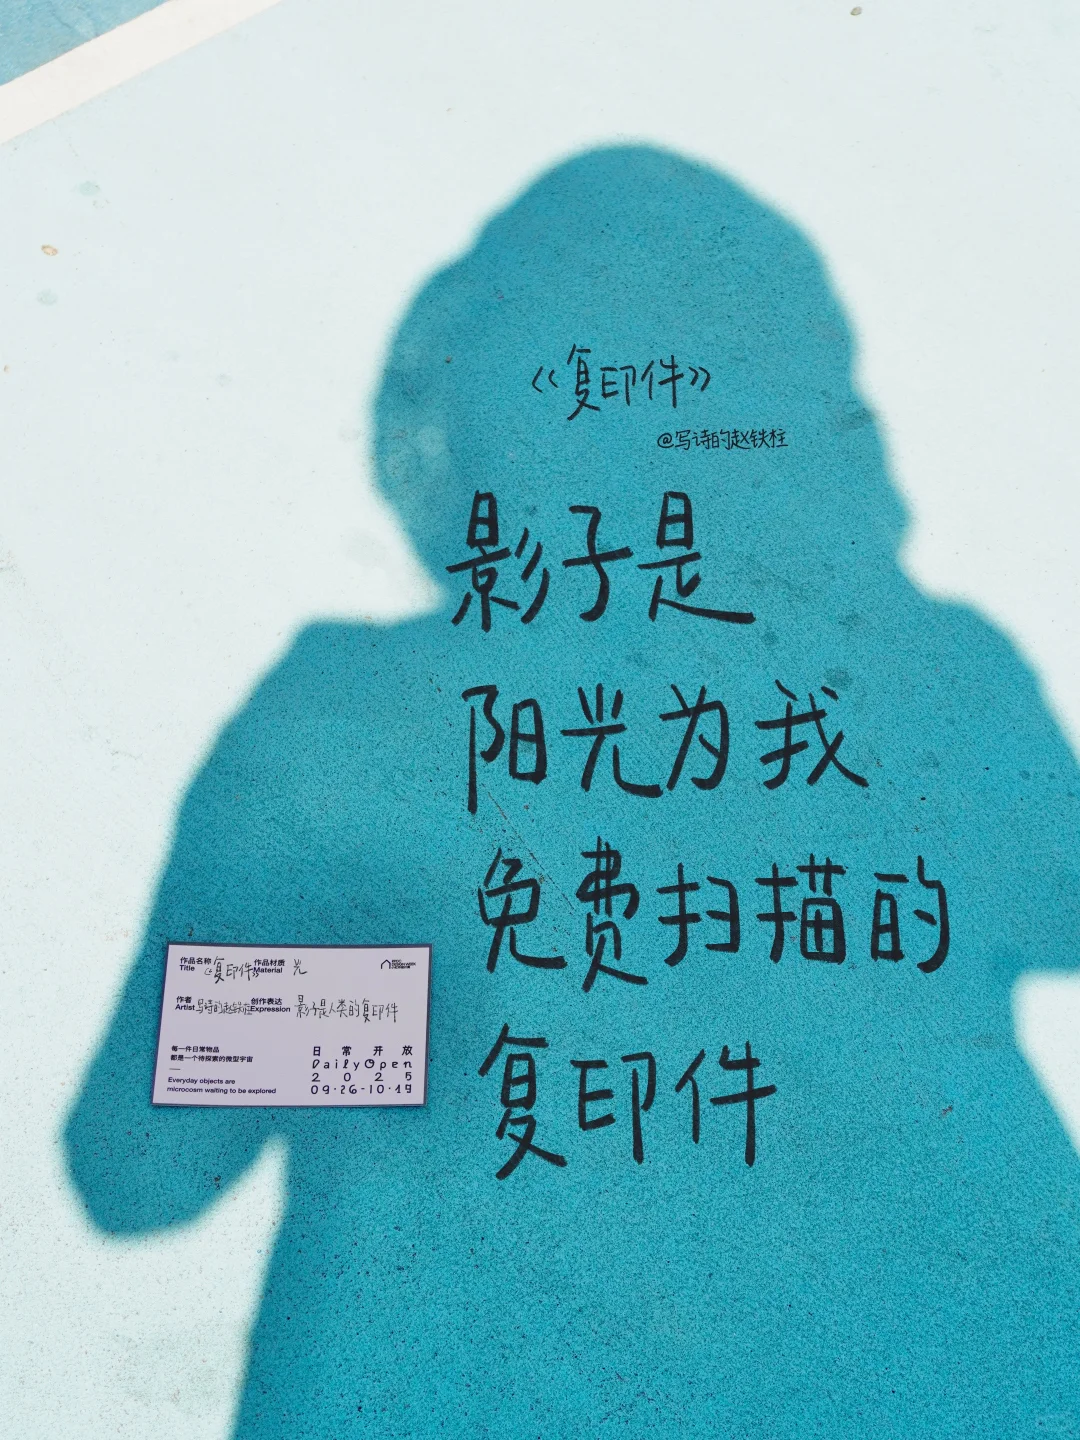 《复印件》
@写诗的赵铁柱
影子是
阳光为我
免费扫描的
复印件
作品名称 《复印件》 作品材质 光
Title Material
作者 写诗的赵铁柱 创作表达 影子是人类的复印件
Artist Expression
每一件日常物品
都是一个待探索的微型宇宙
Everyday objects are
microcosm waiting to be explored
日常开放
DailyOpen
2025
09·26-10·19